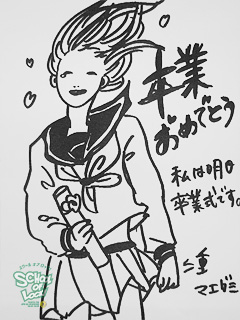 卒業
おめでとう
私は明日
卒業式です。
マエガミ
SCHOOL
OF
LOCK!